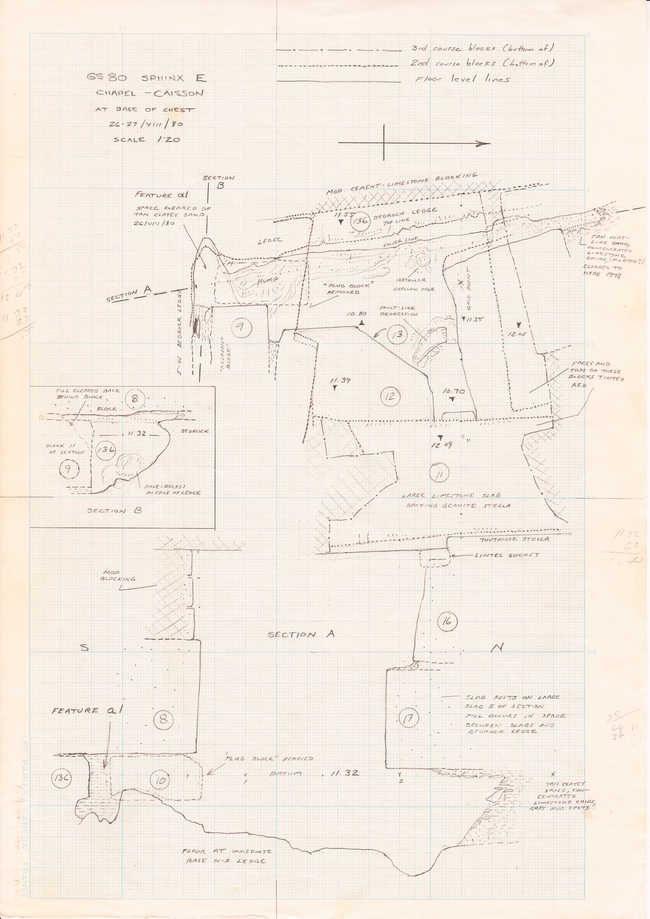 GS 80 SPHINX E
CHAPEL - CAISSON
AT BASE OF CHEST
26-27/VIII/80
SCALE 1:20
3rd course blocks (bottom of)
2nd course blocks (bottom of)
Floor level lines
SECTION
B
FEATURE a1
SPACE CLEARED OF
TAN CLAYEY SAND
26/VIII/80
MOD. CEMENT-LIMESTONE BLOCKING
11.55
136
BEDROCK LEDGE
TOP LINE
LEDGE
HUMP
"PLUG BLOCK"
REMOVED
SHALLOW HOLE
SECTION A
E-W BEDROCK LEDGE
9
10.80
FAULT-LIKE
DEPRESSION
13
11.35
12.05
TAN CLAY-
LIKE SAND,
CONCENTRATED
LIMESTONE
CLEARED TO
HERE 1978
FACES AND
TOPS OF THESE
BLOCKS TINTED
RED
11.39
12
10.70
12.09
11
LARGE LIMESTONE SLAB
BACKING GRANITE STELLA
THUTMOSE STELLA
LINTEL SOCKET
FILL CLEARED BACK
BEHIND BLOCK
8
BLOCK
11.32
BEDROCK
BLOCK N
OF SECTION
136
9
HOLE-RECESS
IN FACE OF LEDGE
SECTION B
MOD
BLOCKING
SECTION A
16
S
N
FEATURE a1
8
17
SLAB RESTS ON LARGE
SLAB E OF SECTION
FILL OCCURS IN SPACE
BETWEEN SLABS AND
BEDROCK LEDGE
136
10
"PLUG BLOCK" REMOVED
DATUM 11.32
TAN CLAYEY
SAND, CON-
CENTRATED
LIMESTONE CHIPS,
GREY MUD SPOTS
FLOOR AT IMMEDIATE
BASE N-S LEDGE